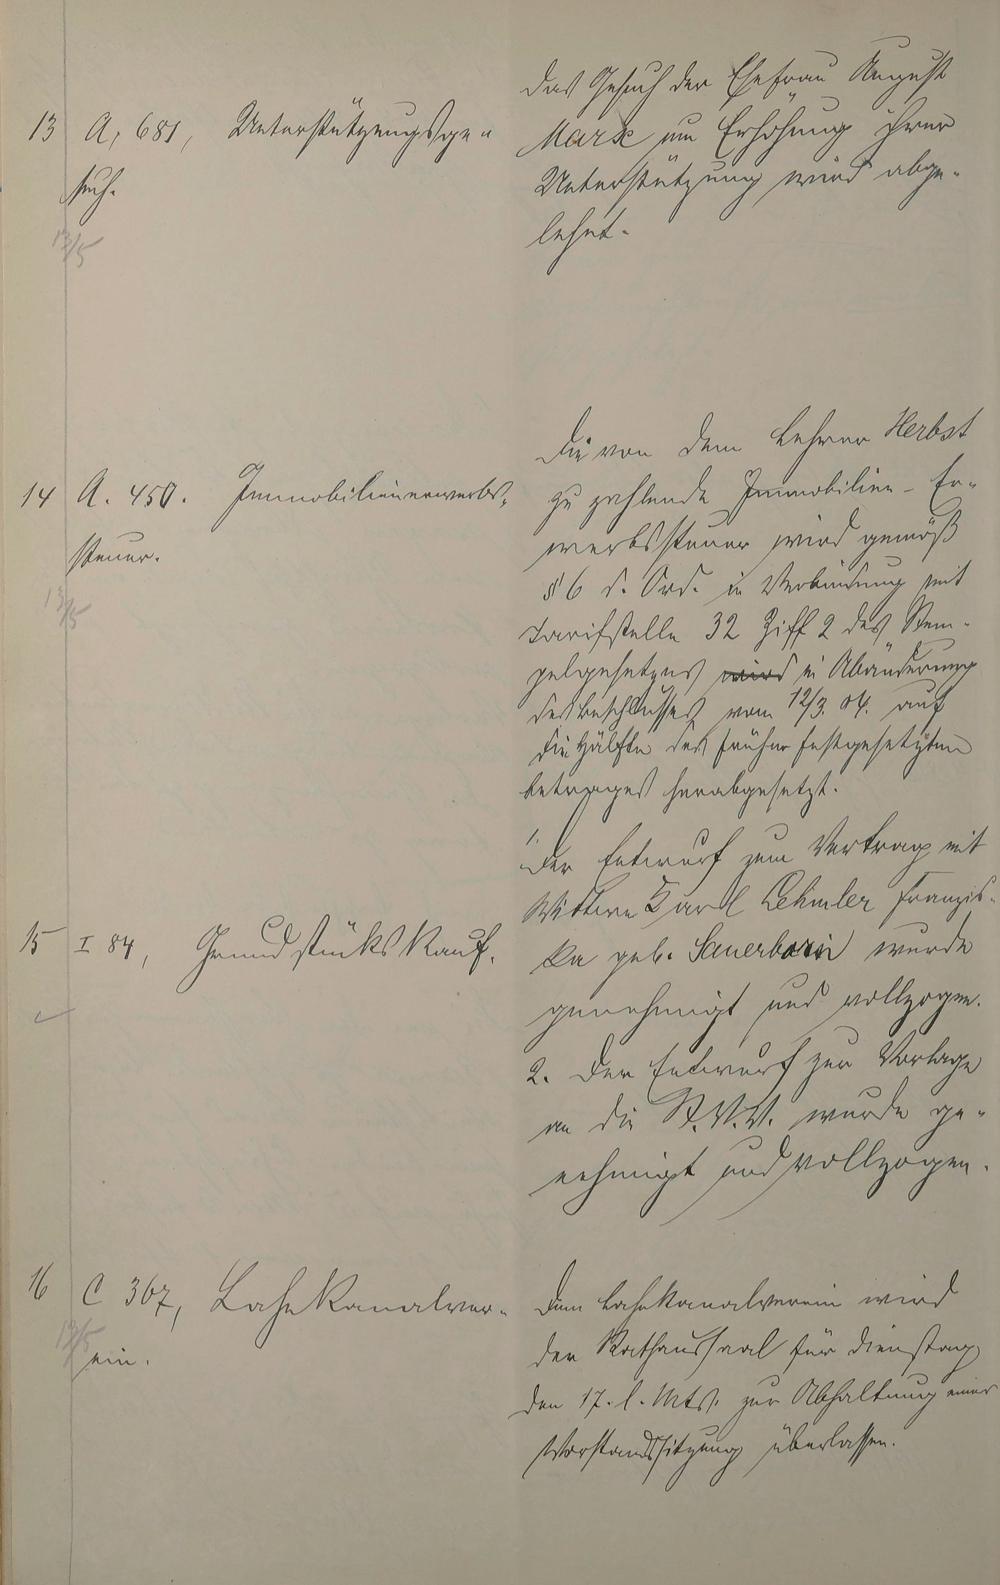 13 A, 681, Unterstützungsge-
such.
13/5
Das Gesuch der Ehefrau August
Mark um Erhöhung ihrer
Unterstützung wird abge-
lehnt.
14 A. 450. Immobilienerwerbs-
steuer.
13/5
Die von dem Lehrer Herbst
zu zahlende Immobilien-Er-
werbssteuer wird gemäß
§ 6 d. Ord. in Verbindung mit
Tarifstelle 32 Ziff 2 des Stem-
pelgesetzes wird in Abänderung
des Beschlusses vom 12/3. 04. auf
die Hälfte des früher festgesetzten
Betrages herabgesetzt.
15 I 84, Grundstückskauf.
1.
Der Entwurf zum Vertrag mit
Wittwe Karl Lehmler Franzis-
ka geb. Sauerborn wurde
genehmigt und vollzogen.
2. Der Entwurf zur Vorlage
an die St.V.V. wurde ge-
nehmigt und vollzogen.
16 C 367, Lahnkanalver-
ein.
13/5
Dem Lahnkanalverein wird
der Rathaussaal für Dienstag
den 17. l. Mts. zur Abhaltung einer
Vorstandssitzung überlassen.